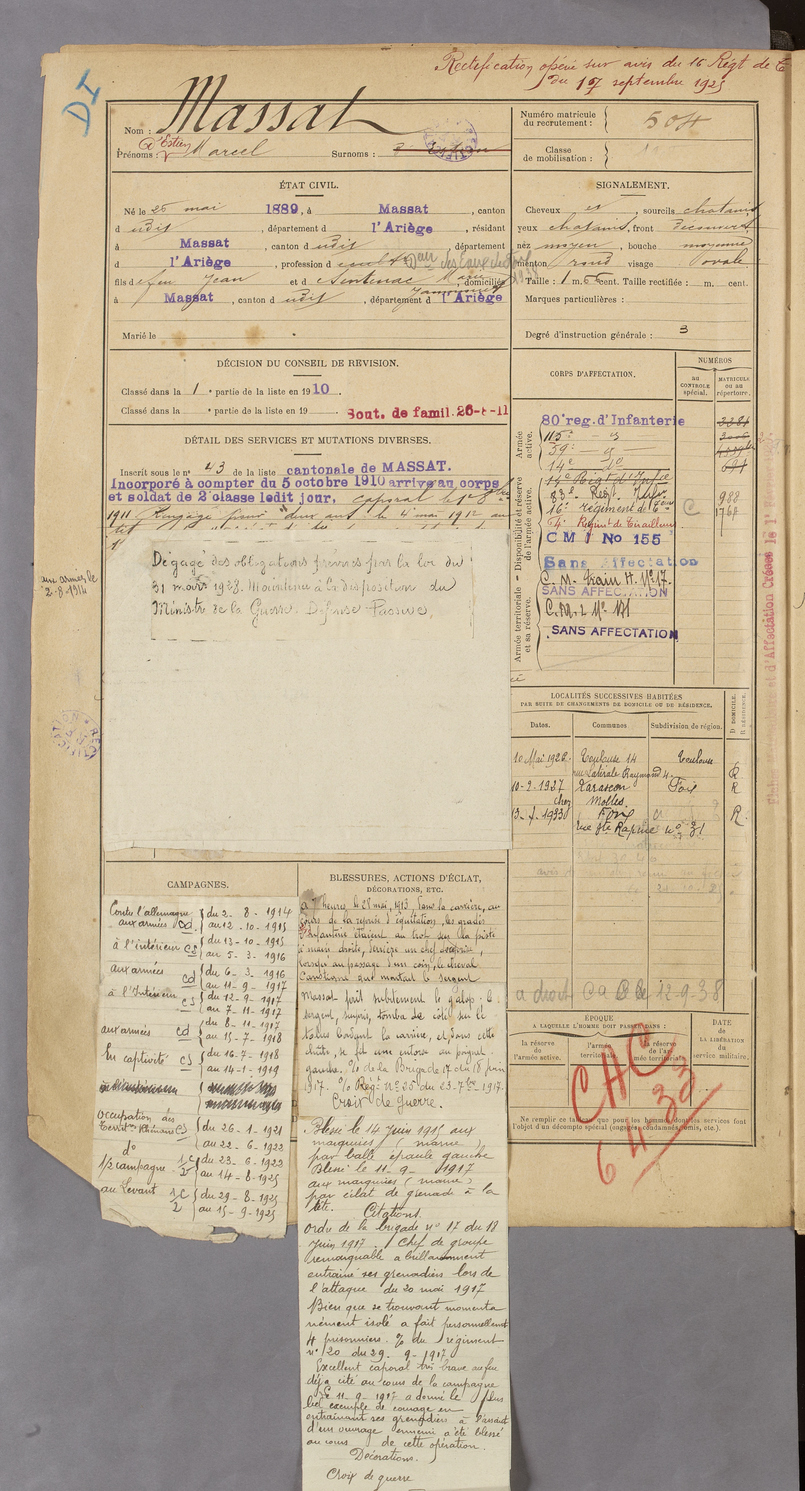 Rectification opéré sur avis du 16 Régt de
du 17 septembre 1925
DI
Nom : Massat
Prénoms : Marcel Surnoms :
Numéro matricule du recrutement : 504
Classe de mobilisation :
ÉTAT CIVIL.
Né le 25 mai 1889, à Massat, canton
d udit, département d l'Ariège, résidant
à Massat, canton d udit, département
d l'Ariège, profession d
fils d feu Jean et d Sentenac Marie, domiciliés
à Massat, canton d udit, département d l'Ariège
Marié le
SIGNALEMENT.
Cheveux et, sourcils chatains
yeux chatains, front découvert
nez moyen, bouche moyenne
menton rond visage ovale
Taille : 1 m. 56 cent. Taille rectifiée : m. cent.
Marques particulières :
Degré d'instruction générale : 3
DÉCISION DU CONSEIL DE REVISION.
Classé dans la 1e partie de la liste en 1910.
Classé dans la e partie de la liste en 19
Sout. de famil.
DÉTAIL DES SERVICES ET MUTATIONS DIVERSES.
Inscrit sous le n° 43 de la liste cantonale de MASSAT.
Incorporé à compter du 5 octobre 1910 arrivé au corps
et soldat de 2e classe ledit jour, caporal le
1911 Rengagé pour deux ans le 4 mai 1912
aux armées le
2-8-1914
Dégagé des obligations prévues par la loi du
31 mars 1928. Maintenu à la disposition du
Ministre de la Guerre. Défense Passive.
CORPS D'AFFECTATION.
NUMÉROS
au CONTROLE spécial.
MATRICULE ou au répertoire.
Armée active.
Disponibilité et réserve de l'armée active.
Armée territoriale et sa réserve.
80e reg. d'Infanterie
115e
59e
14e do
14e Régt d'Infie
83e Regt Inf. 988
16e régiment de C 1768
Regiment de Tirailleurs
C M I No 155
Sans Affectation
C. M. Train H. No 17.
SANS AFFECTATION
SANS AFFECTATION
LOCALITÉS SUCCESSIVES HABITÉES
PAR SUITE DE CHANGEMENTS DE DOMICILE OU DE RÉSIDENCE.
Dates. Communes. Subdivision de région. D DOMICILE. R RÉSIDENCE.
10 Mai 1926 Toulouse 14 Toulouse
rue Latérale Raymond 4. R
10-2-1927 Tarascon Foix R
chez Molles.
Foix R.
rue Ste Rapine no 31
a droit 12-9-38
ÉPOQUE
A LAQUELLE L'HOMME DOIT PASSER DANS :
la réserve de l'armée active.
l'armée territoriale.
la réserve de l'armée territoriale.
DATE de LA LIBÉRATION du service militaire.
Ne remplir ce tableau que pour les hommes dont les services font
l'objet d'un décompte spécial (engagés, condamnés, omis, etc.).
CAMPAGNES.
Contre l'allemagne
aux armées cd du 2-8-1914
au 12-10-1915
à l'intérieur cs du 13-10-1915
au 5-3-1916
aux armées cd du 6-3-1916
au 11-9-1917
à l'Intérieur cs du 12-9-1917
au 7-11-1917
aux armées cd du 8-11-1917
au 15-7-1918
En captivité cs du 16-7-1918
au 14-1-1919
Occupation des
Territres Rhénans cs du 26-1-1921
au 22-6-1922
do
1/2 campagne du 23-6-1922
au 14-8-1925
au Levant du 29-8-1925
au 15-9-1925
BLESSURES, ACTIONS D'ÉCLAT,
DÉCORATIONS, ETC.
à 7 heures, le 28 mai, 1913, dans la carrière, au
cours de la reprise d'équitation, les gradés
d'Infanterie étaient au trot sur la piste
à main droite, derrière un chef de reprise,
lorsqu'au passage d'un coin, le cheval
que montait le sergent
Massat prit subitement le galop. le
sergent, surpris, tomba de côté sur le
talus bordant la carrière, et dans cette
chute, se fit une entorse au poignet
gauche. O/ de la Brigade 17 du 18 juin
1917. O/ Régt no 25 du 23-7bre 1917.
Croix de Guerre.
Blessé le 14 juin 1915 aux
marquises (marne)
par balle épaule gauche
Blessé le 11-9-1917
aux marquises (marne)
par éclat de grenade à la
tête. Citations
ordre de la brigade no 17 du 18
juin 1917. Chef de groupe
remarquable a brillamment
entrainé ses grenadiers lors de
l'attaque du 20 mai 1917
Bien que se trouvant momenta
nément isolé a fait personnellement
4 prisonniers. O/ du régiment
no 20 du 29-9-1917
Excellent caporal très brave au feu
déjà cité au cours de la campagne
Le 11-9-1917 a donné le plus
bel exemple de courage en
entrainant ses grenadiers à l'assaut
d'un ouvrage ennemi a été blessé
au cours de cette opération.
Décorations.
Croix de guerre